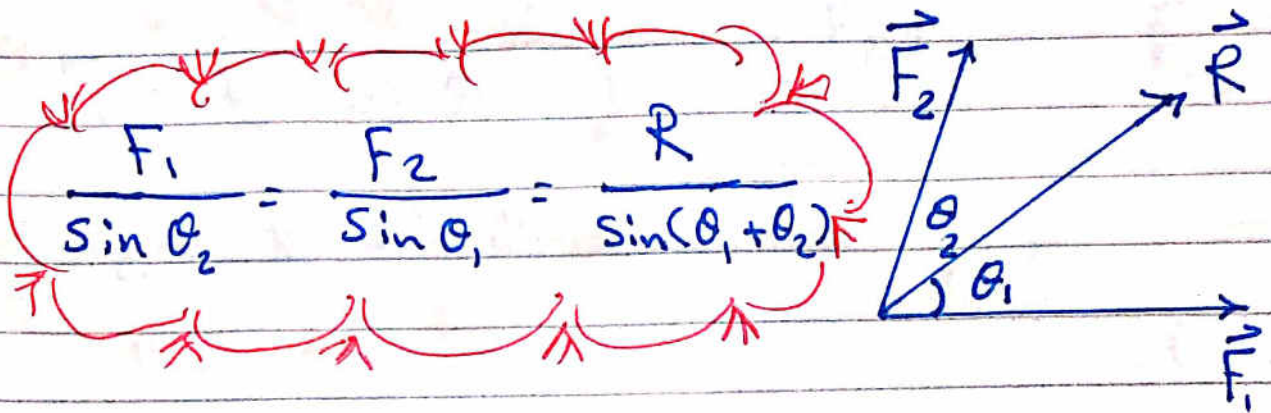 F₁/sin θ₂ = F₂/sin θ₁ = R/sin(θ₁+θ₂)
F₂⃗
R⃗
θ₂
θ₁
F₁⃗